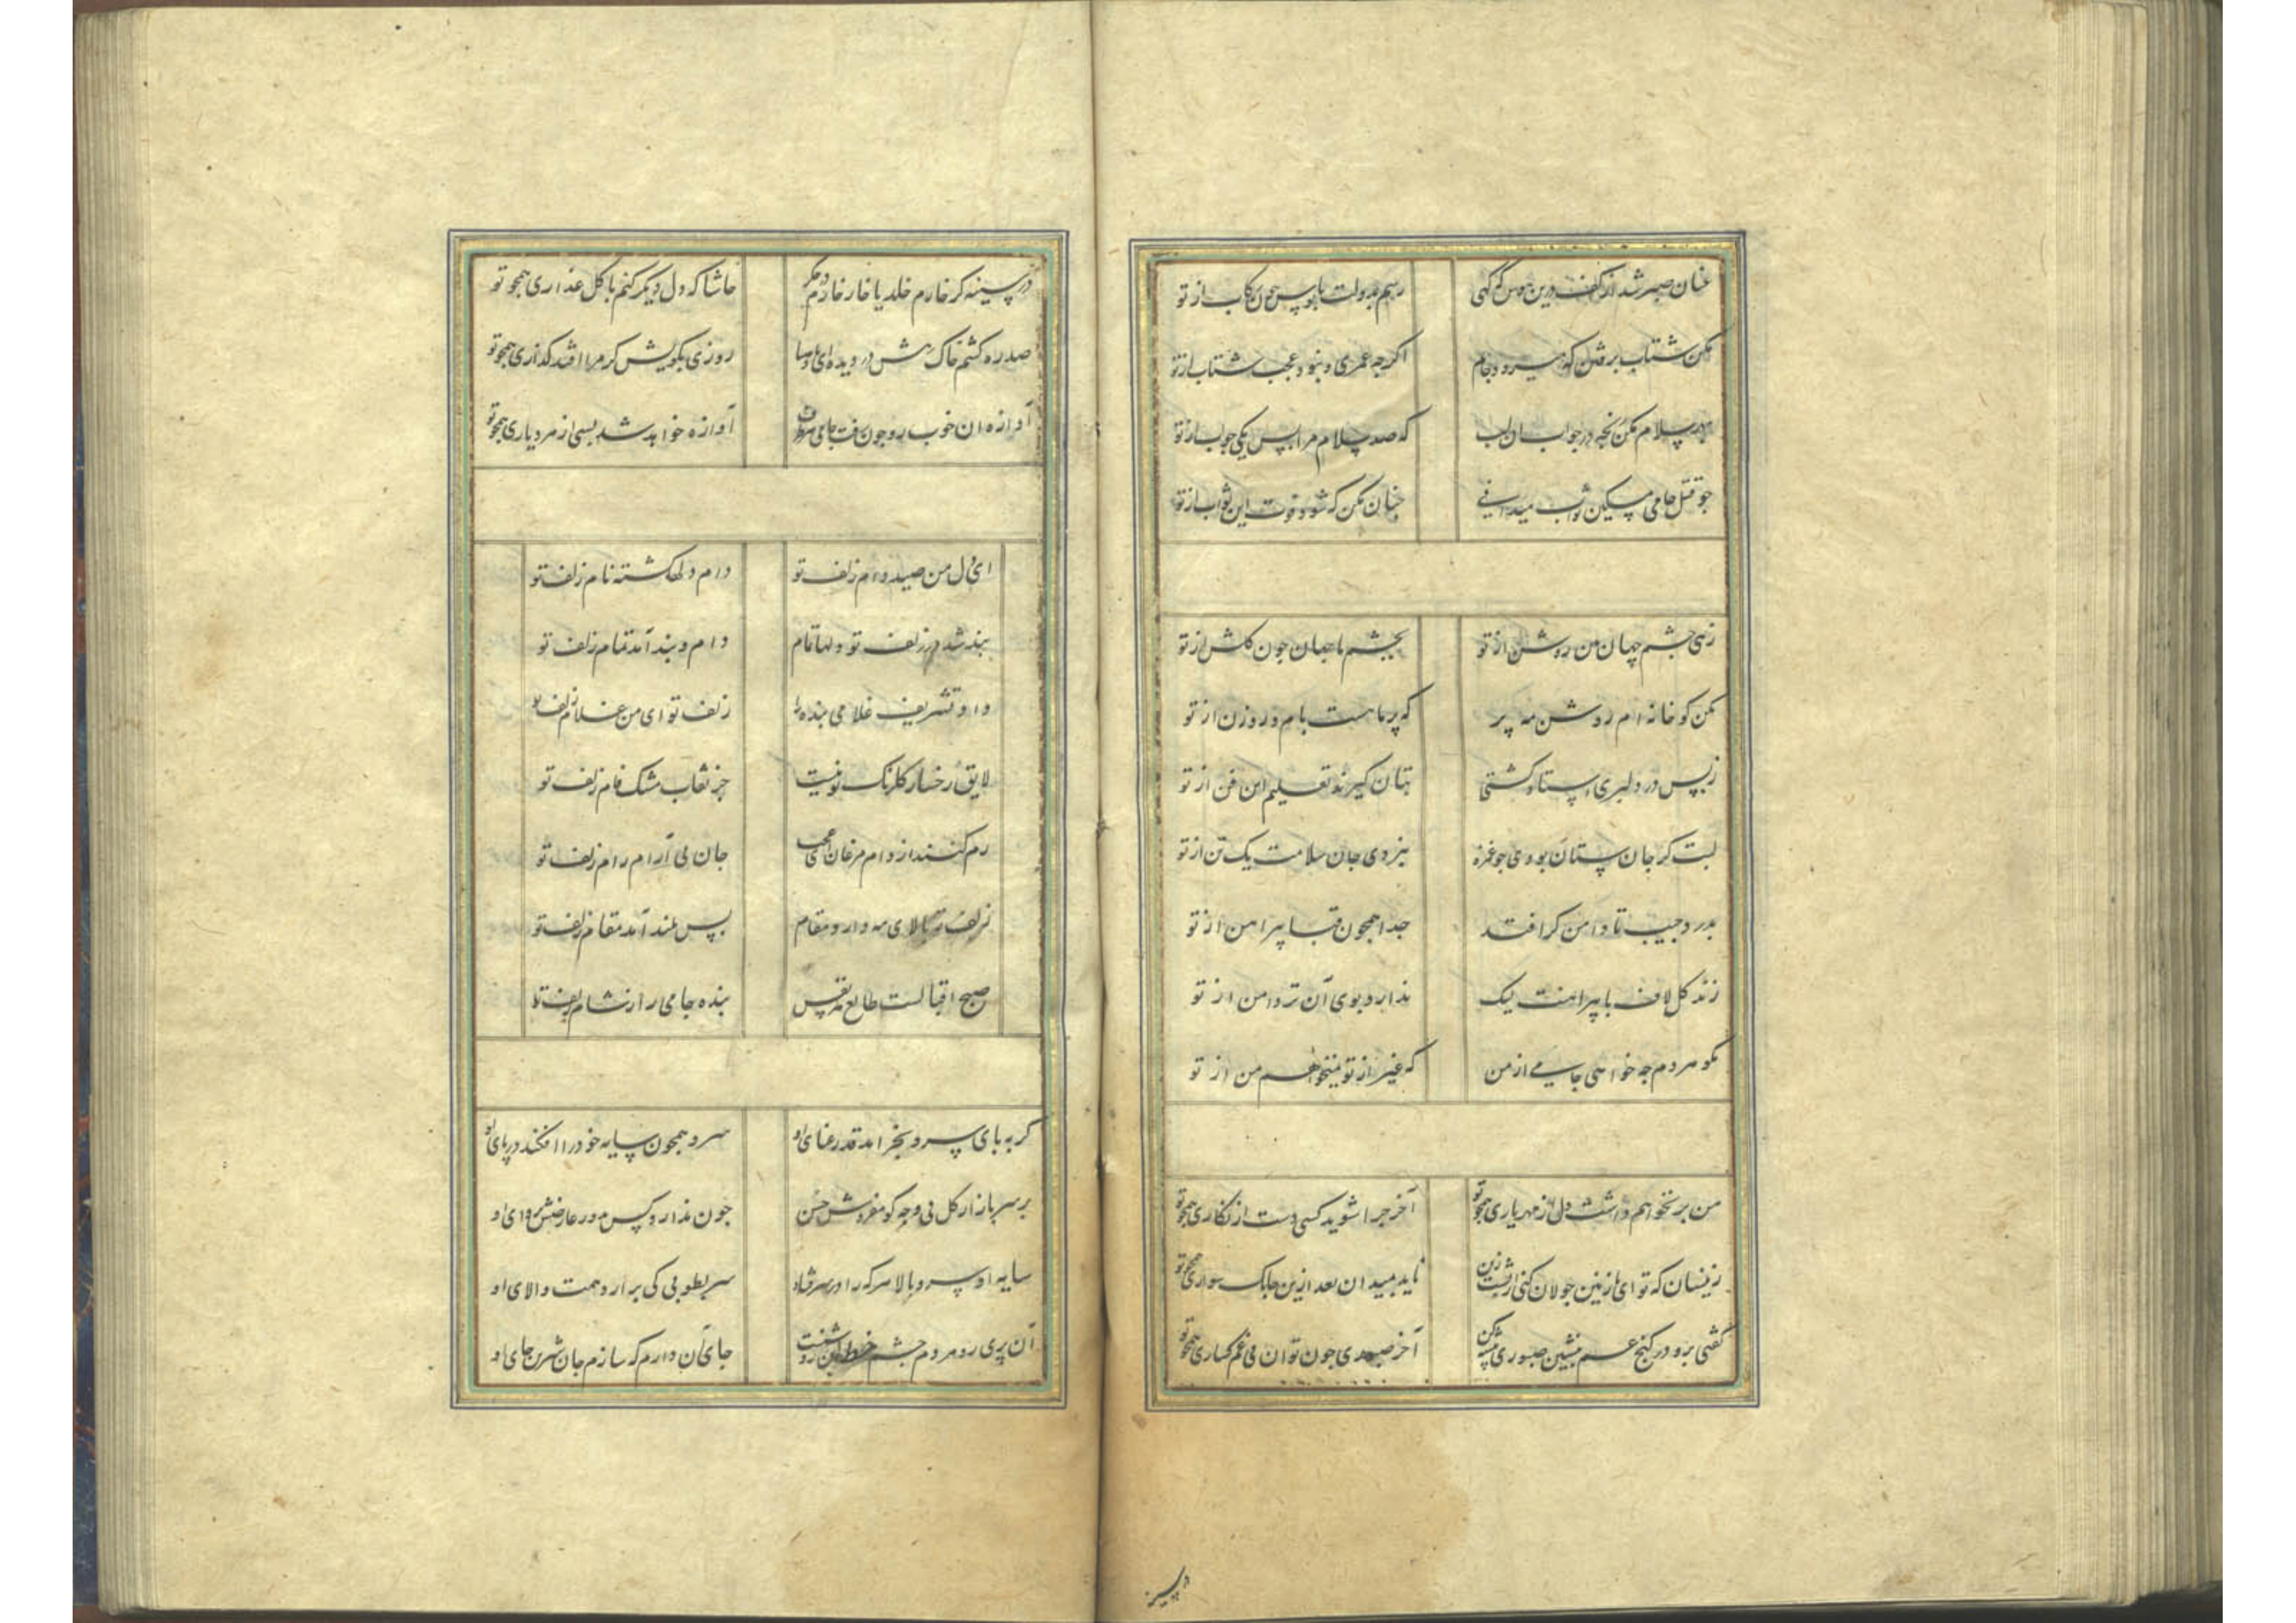 عنان صبر شد از کف درین هوس که گهی
رسم بدولت پابوس چون رکاب از تو
مکن شتاب برفتن که میرود جانم
اگرچه عمری و نبود عجب شتاب از تو
بهر سلام مکن رنجه در جواب آن لب
که صد سلام مرا بس یکی جواب از تو
چو قتل جامی مسکین ثواب میدانی
چنان مکن که شود فوت این ثواب از تو
زهی چشم جهان من روشن از تو
بچشم ما جهان چون گلشن از تو
مکن گو خانه ام روشن مه
که پر ماهست بام و روزن از تو
ز بس در دلبری استاد گشتی
بتان گیرند تعلیم این فن از تو
لبت گر جان ستان بودی چو غمزه
نبردی جان سلامت یک تن از تو
بدرد جیب تا دامن گر افتد
جدا همچون قبا پیراهن از تو
زند گل لاف با پیراهنت لیک
ندارد بوی آن تر دامن از تو
مگو هر دم چه خواهی جامی از من
که غیر از تو نمیخواهم من از تو
من بر نخواهم داشت دل از مهر یاری همچو تو
آخر چرا شوید کسی دست از نگاری همچو تو
زینسان که تو ای نازنین جولان کنی از پشت زین
ناید بمیدان بعد ازین چابک سواری همچو تو
گفتی برو در کنج غم بنشین صبوری پیشه کن
آخر صبوری چون توان بی غمگساری همچو تو
در سینه
در سینه گر خارم خلد یا خار خارم در جگر
حاشا که دل دیگر کنم با گل عذاری همچو تو
صد ره کشم خاک رهش در دیده ای باد صبا
روزی بکویش گر مرا افتد گذاری همچو تو
آوازه آن خوب رو چون رفت جامی هر طرف
آواره خواهد شد بسی از هر دیاری همچو تو
ای دل من صید دام زلف تو
دام دلها گشته نام زلف تو
بند شد در زلف تو دلها تمام
دام و بند آمد تمام زلف تو
داد تشریف غلامی بنده را
زلف تو ای من غلام زلف تو
لایق رخسار گلرنگ تو نیست
جز نقاب مشک فام زلف تو
رم کنند از دام مرغان ای عجب
جان بی آرام رام زلف تو
زلف تو بالای مه دارد مقام
بس بلند آمد مقام زلف تو
صبح اقبالست طالع هر نفس
بنده جامی را ز شام زلف تو
گر به پای سرو بخرامد قد رعنای او
سرو همچون سایه خود را افکند در پای او
بر سر بازار گل بی وجه گو مفروش حسن
چون ندارد کس بدور عارضش پروای او
سایه او سرو بالا هر که را بر سر فتاد
سر بطوبی کی برآرد همت والای او
آن پری رو مردم چشم
جای آن دارم که سازم جان شیرین جای او